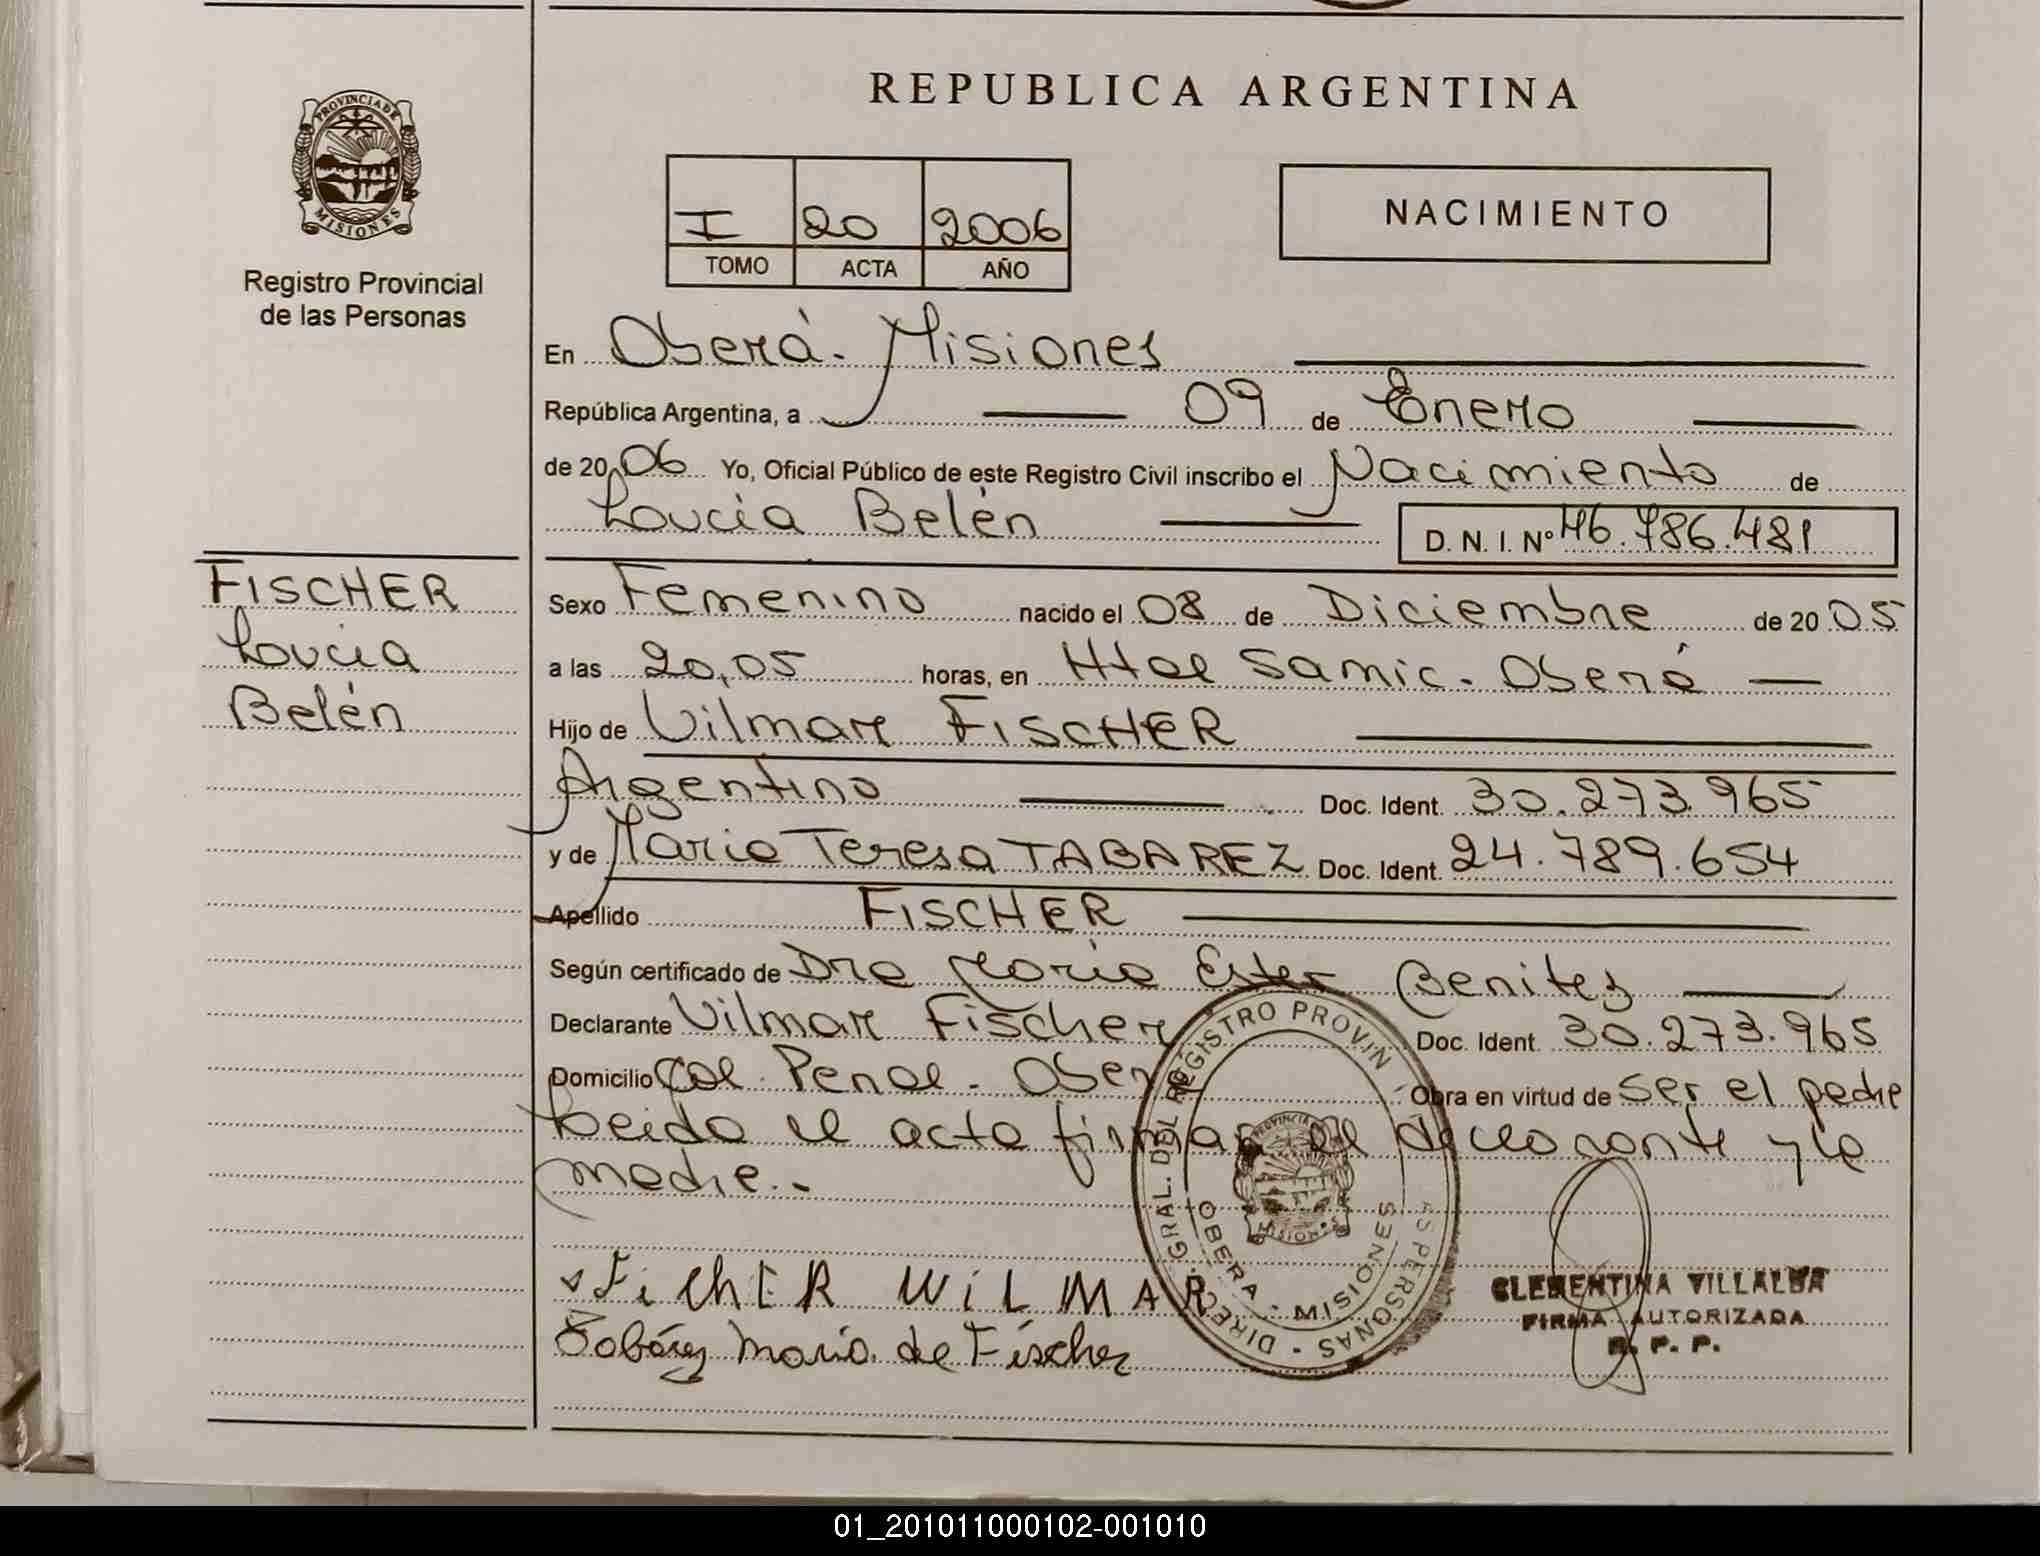 REPUBLICA ARGENTINA
PROVINCIA DE MISIONES
Registro Provincial
de las Personas
I 20 2006
TOMO ACTA AÑO
NACIMIENTO
En Oberá - Misiones
República Argentina, a 09 de Enero
de 2006 Yo, Oficial Público de este Registro Civil inscribo el Nacimiento de
Loucia Belén D. N. I. Nº 46.786.481
FISCHER
Loucia
Belén
Sexo Femenino nacido el 08 de Diciembre de 20 05
a las 20,05 horas, en Htal Samic - Oberá
Hijo de Vilmar FISCHER
Argentino Doc. Ident. 30.273.965
y de Maria Teresa TABAREZ Doc. Ident. 24.789.654
Apellido FISCHER
Según certificado de Dra Maria Ester Benitez
Declarante Vilmar Fischer Doc. Ident. 30.273.965
Domicilio Col. Penal - Ober Obra en virtud de ser el padre
Leida el acta firman el declarante y la
madre.-
FichER WiLMAR
Tabárez María de Fischer
DIREC. GRAL. DEL REGISTRO PROVIN AS PERSONAS
OBERA - MISIONES
CLEMENTINA VILLALBA
FIRMA AUTORIZADA
R. P. P.
01_201011000102-001010